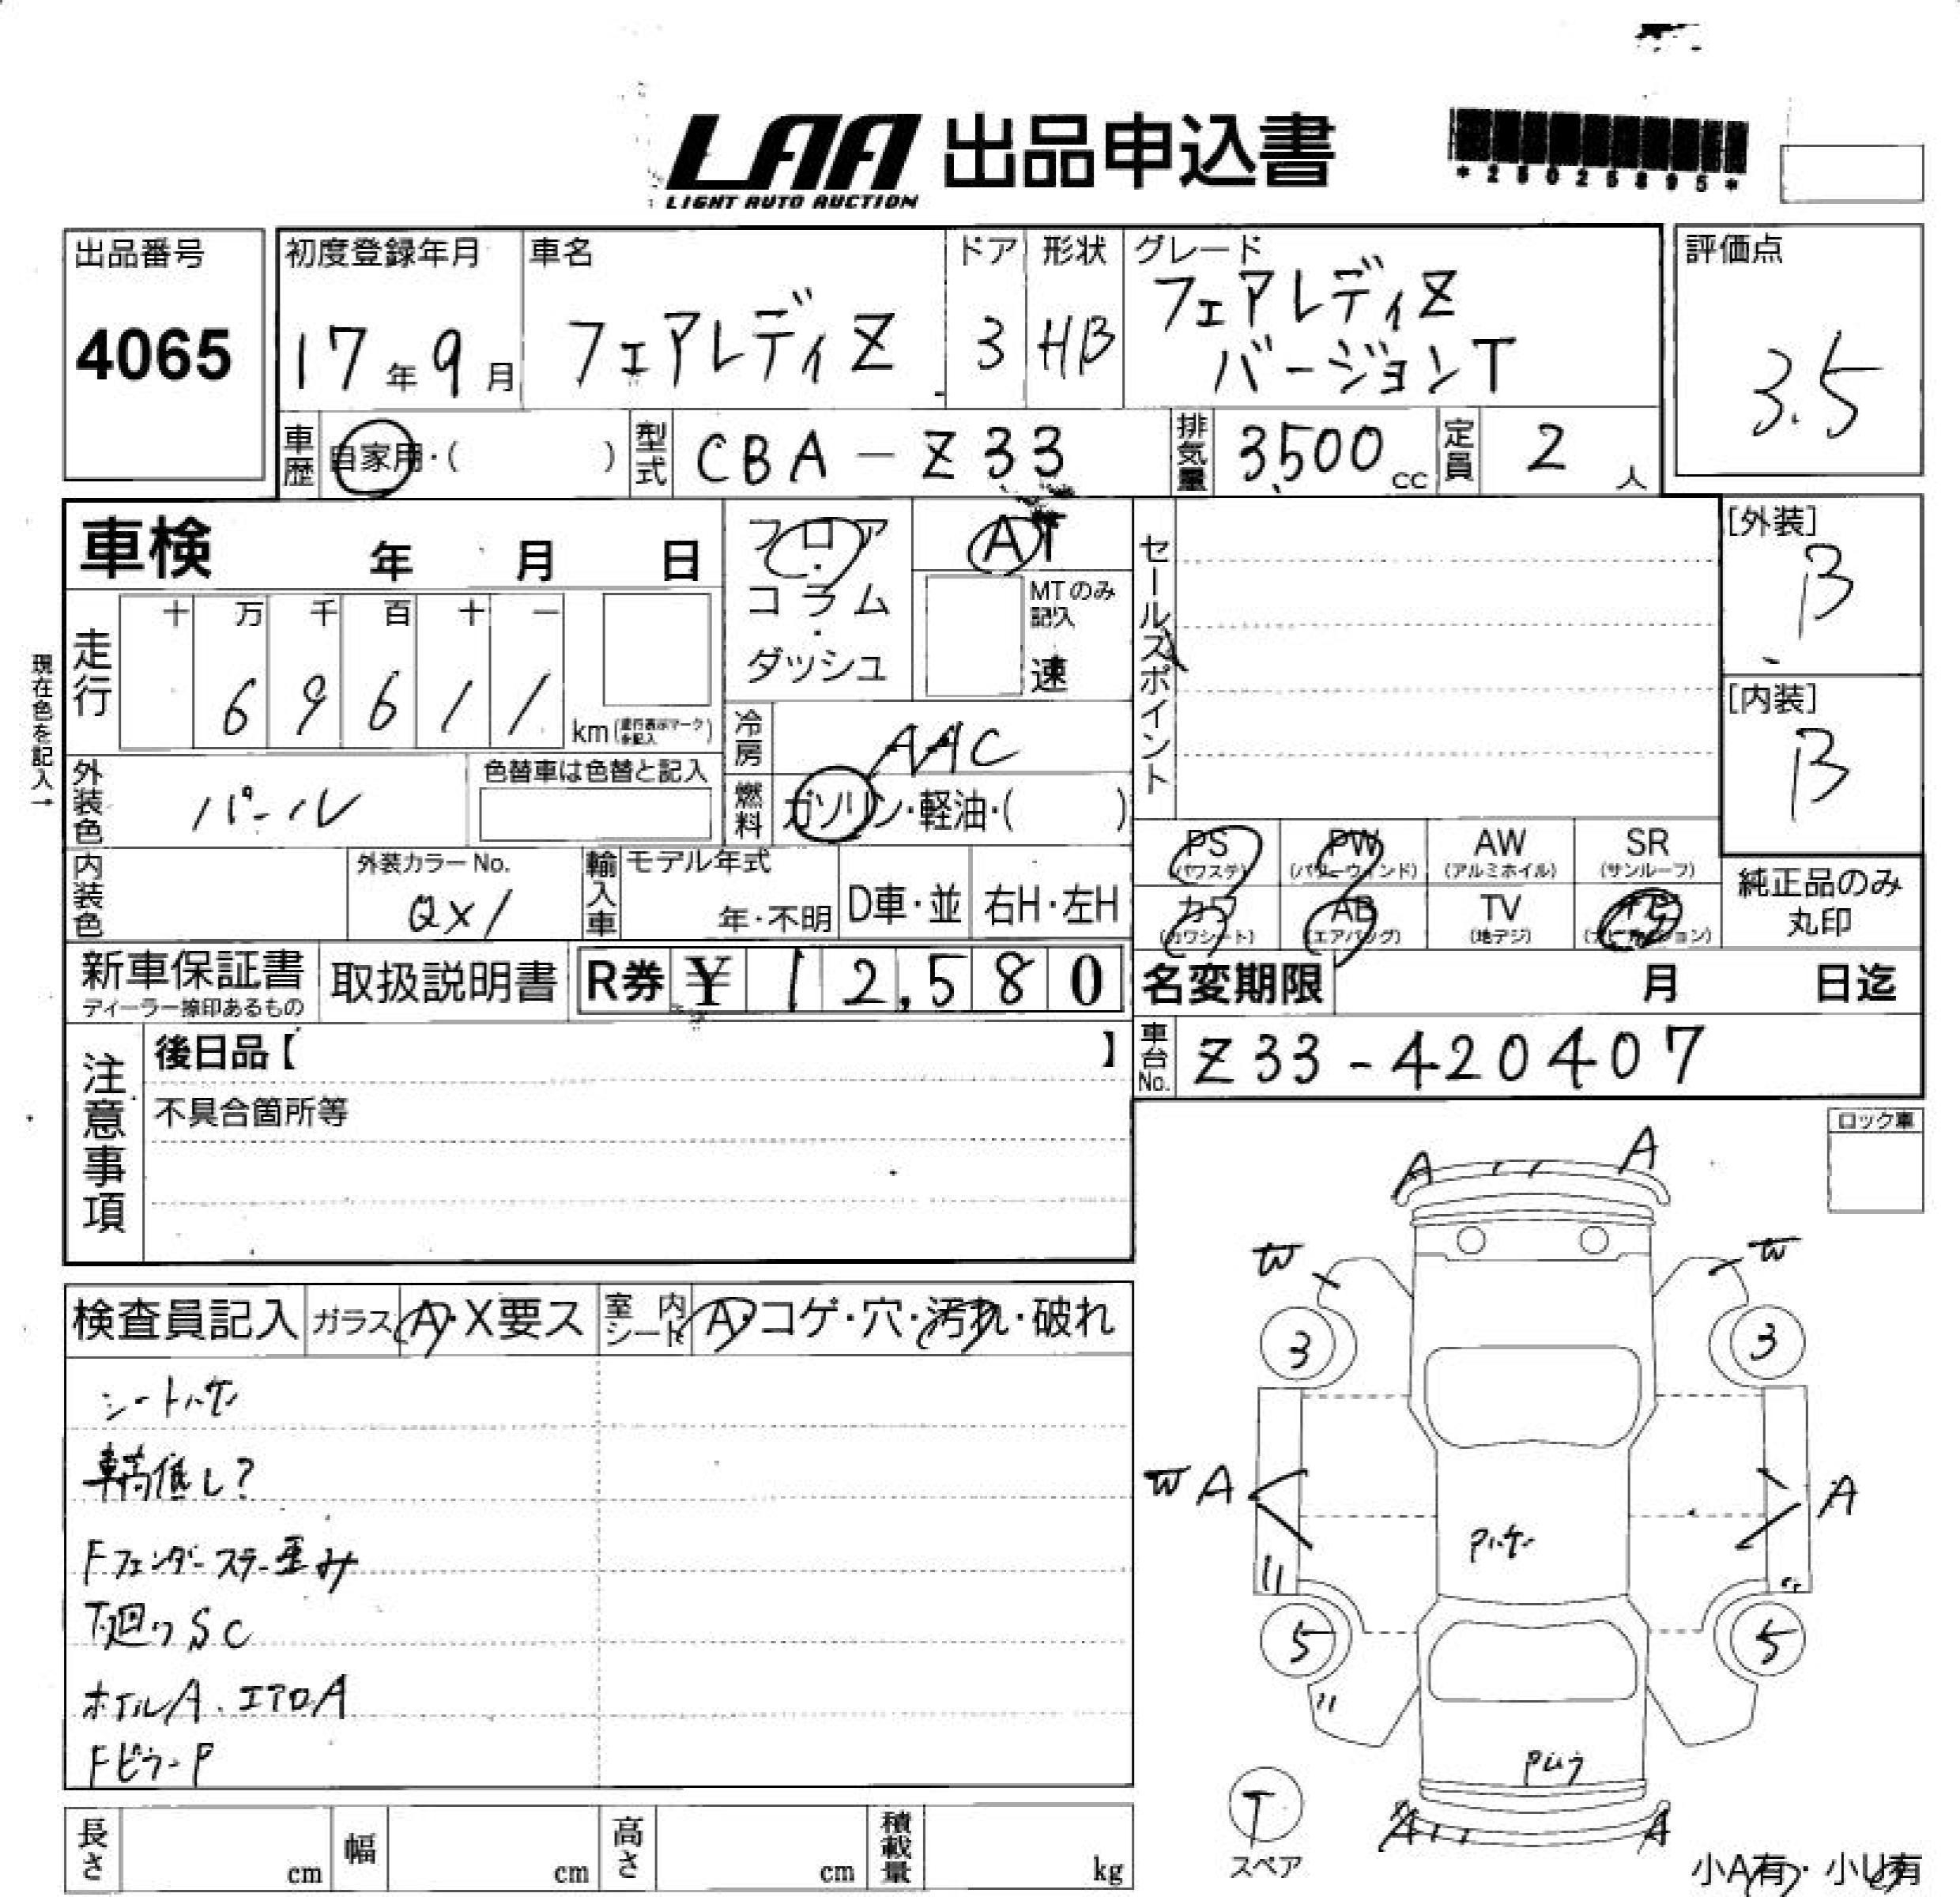 LAA 出品申込書
LIGHT AUTO AUCTION
出品番号 初度登録年月 車名 ドア 形状 グレード 評価点
4065 17年9月 フェアレディZ 3 HB フェアレディZ
バージョンT 3.5
車歴 自家用・( ) 型式 CBA-Z33 排気量 3,500cc 定員 2人
車検 年 月 日 フロア・コラム・ダッシュ AT
MTのみ記入 速
セールスポイント
[外装] B
[内装] B
現在色を記入→
走行 十 万 千 百 十 一
6 9 6 1 1 km
冷房 AAC
外装色 パール 色替車は色替と記入
燃料 ガソリン・軽油・( )
PS (パワステ) PW (パワーウインド) AW (アルミホイル) SR (サンルーフ)
カワ (カワシート) AB (エアバッグ) TV (地デジ) (ナビゲーション)
純正品のみ
丸印
内装色 外装カラーNo. QX1 輸入車 モデル年式 年・不明 D車・並 右H・左H
新車保証書 取扱説明書 R券 ¥ 12,580 名変期限 月 日迄
ディーラー捺印あるもの
注意事項 後日品【 】 車台No. Z33-420407
不具合箇所等
ロック車
A A
W W
3 3
W A A
5 5
T
スペア
A A
小A有・小U有
検査員記入 ガラス A・X要ス 室内シート A・コゲ・穴・汚れ・破れ
車高低し?
Fフェンダーステー歪み
下廻りSC
ホイルA.エアロA
FピラーP
長さ cm 幅 cm 高さ cm 積載量 kg